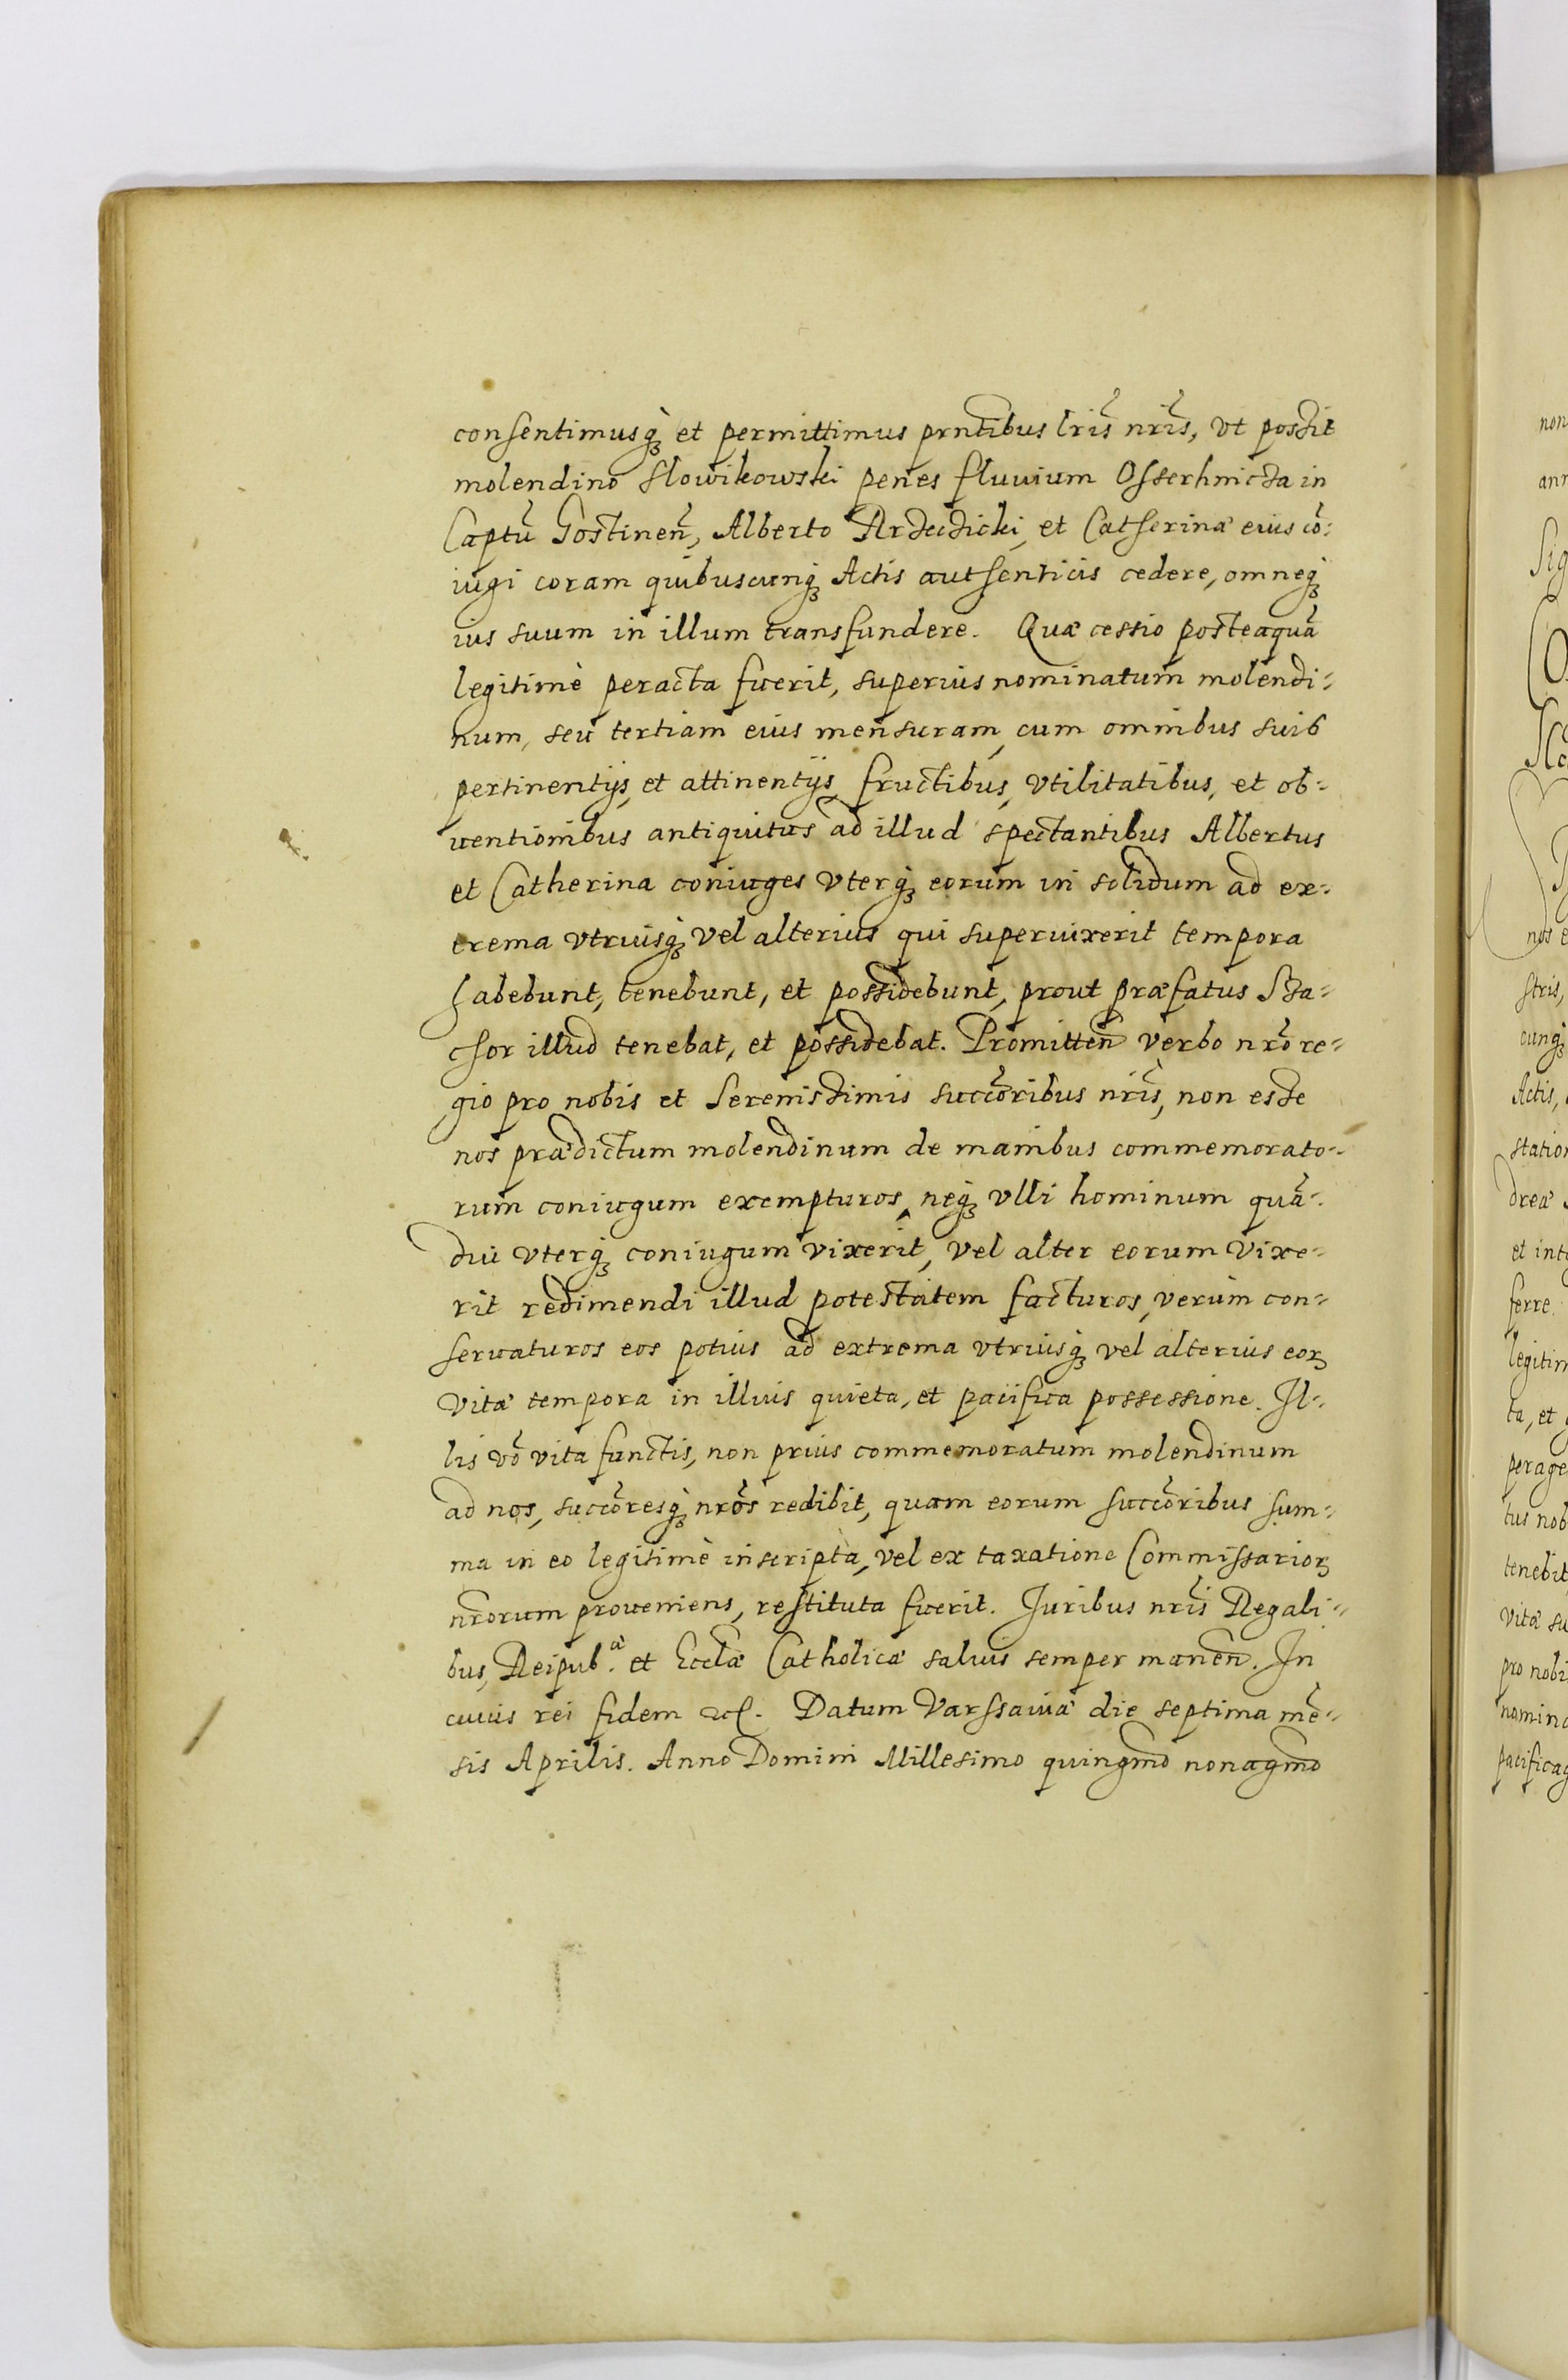 consentimusq́ꝫ et permittimus prntibus lris̃ nris̃, vt possit
molendino Slowikowski penes fluuium Osserhnicza in
Captũ Gostineñ, Alberto et Catherinæ eius cõ:
iugi coram quibuscunqꝫ Actis authenticis cedere, omneqꝫ
ius suum in illum transfundere. Quæ cessio posteaquã
legitimè peracta fuerit, superius nominatum molendi:
num, seu tertiam eius mensuram, cum omnibus suis
pertinentijs, et attinentijs, fructibus, vtilitatibus, et ob:
uentionibus antiquitus ad illud spectantibus Albertus
et Catherina coniuges vterqꝫ eorum in solidum ad ex:
trema vtriusqꝫ vel alterius qui superuixerit tempora
habebunt, tenebunt, et possidebunt, prout præfatus Sta:
chor illud tenebat, et possidebat. Promitteñ verbo nrõ re:
gio pro nobis et Serenissimis succõribus nris̃, non esse
nos prædictum molendinum de manibus commemorato:
rum coniugum exempturos, neqꝫ vlli hominum quã:
diu vterqꝫ coniugum vixerit, vel alter eorum vixe:
rit redimendi illud potestatem facturos, verùm con:
seruaturos eos potius ad extrema vtriusqꝫ vel alterius eorꝫ
vitæ tempora in illius quieta, et pacifica possessione. Il:
lis võ vita functis, non prius commemoratum molendinum
ad nos, succõresq́ꝫ nrõs redibit, quam eorum succõribus sum:
ma in eo legitimè inscripta, vel ex taxatione Commissariorꝫ
nrõrum proueniens, restituta fuerit. Juribus nris̃ Regali:
bus, Reipub.æ et Eccĩæ Catholicæ saluis semper maneñ. In
cuius rei fidem etc. Datum Varssauiæ die septima mẽ:
sis Aprilis. Anno Domini Millesimo quingmõ nonagmõ